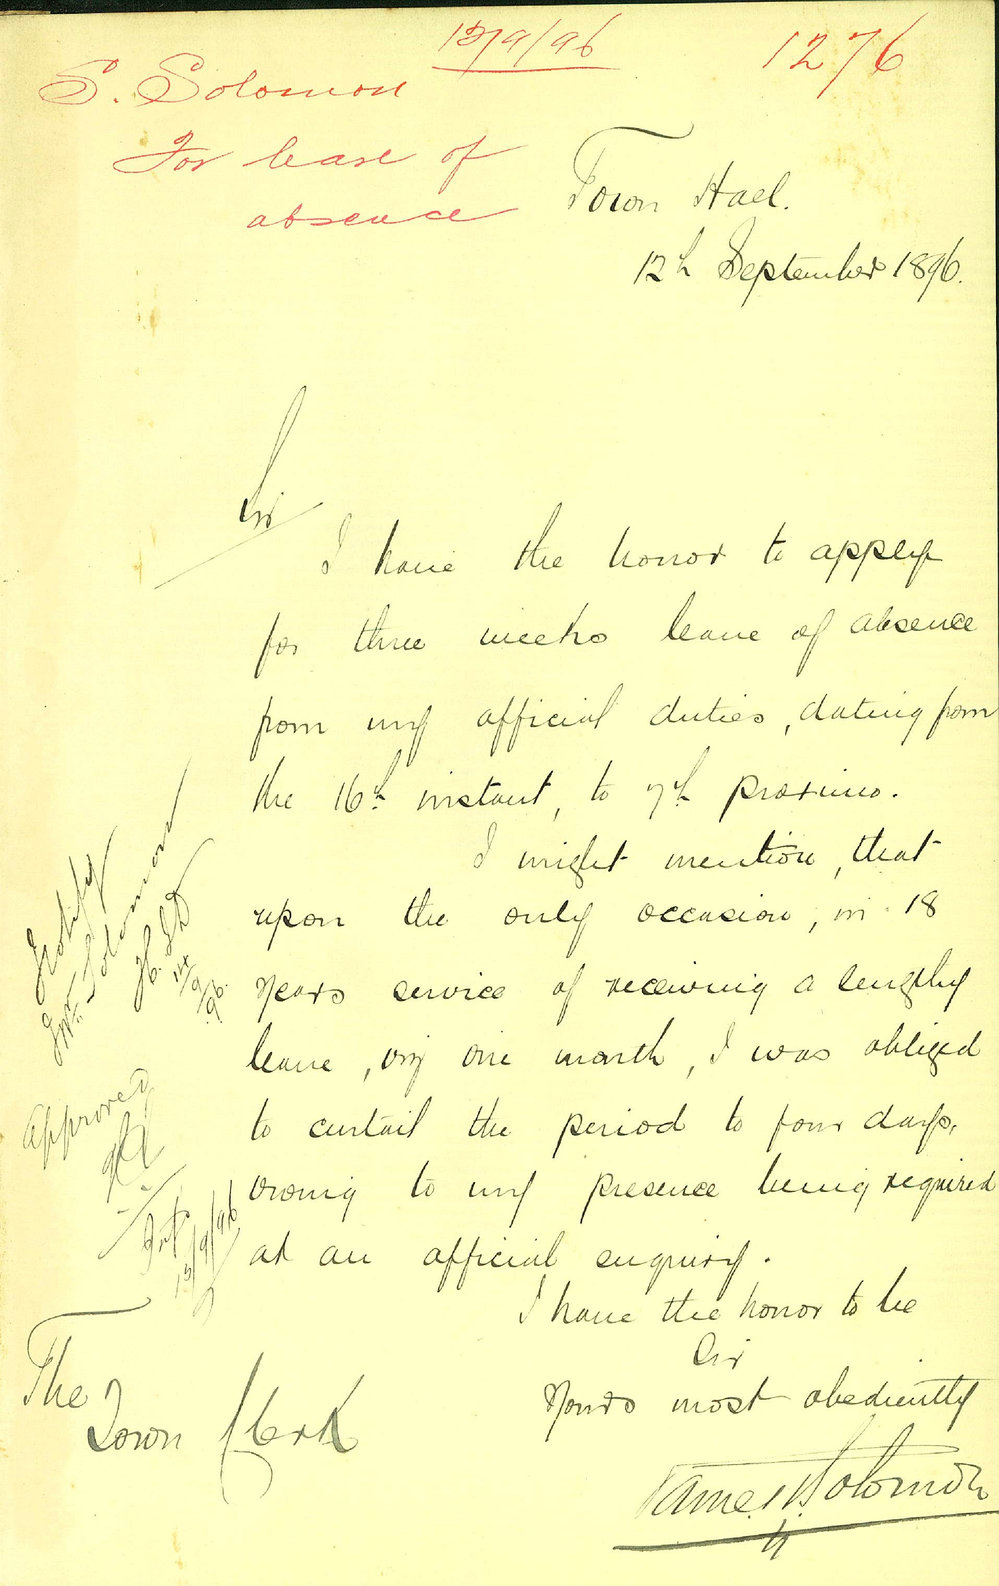 12/9/96
1276
S. Solomon
For leave of
absence
Town Hall.
12th September 1896.
Sir
I have the honor to apply
for three weeks leave of absence
from my official duties, dating from
the 16th instant, to 7th proximo.
I might mention, that
upon the only occasion, in 18
years service of receiving a lengthy
leave, viz one month, I was obliged
to curtail the period to four days,
owing to my presence being required
at an official enquiry.
I have the honor to be
Sir
Yours most obediently
James Solomon
The
Town Clerk
Notify
Mr. Solomon
14/9/96.
Approved
12/9/96